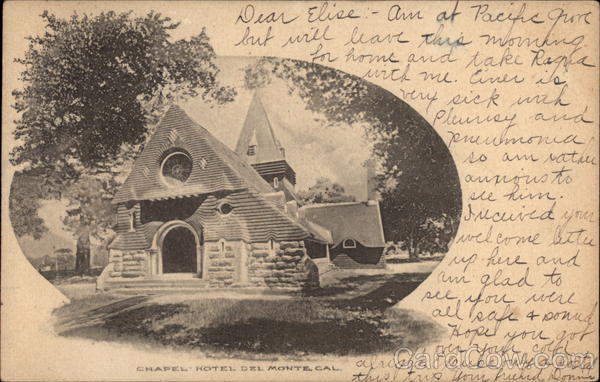 Dear Elise:- Am at Pacific Grove
but will leave this morning
for home and take Ragna
with me. Einer is
very sick with
Pleurisy and
pneumonia
so am rather
anxious to
see him.
I received your
welcome letter
up here and
am glad to
see you were
all safe & sound
Hope you got
over your cold
alright.
this
your friend
CHAPEL HOTEL DEL MONTE, CAL.
CardCow.com